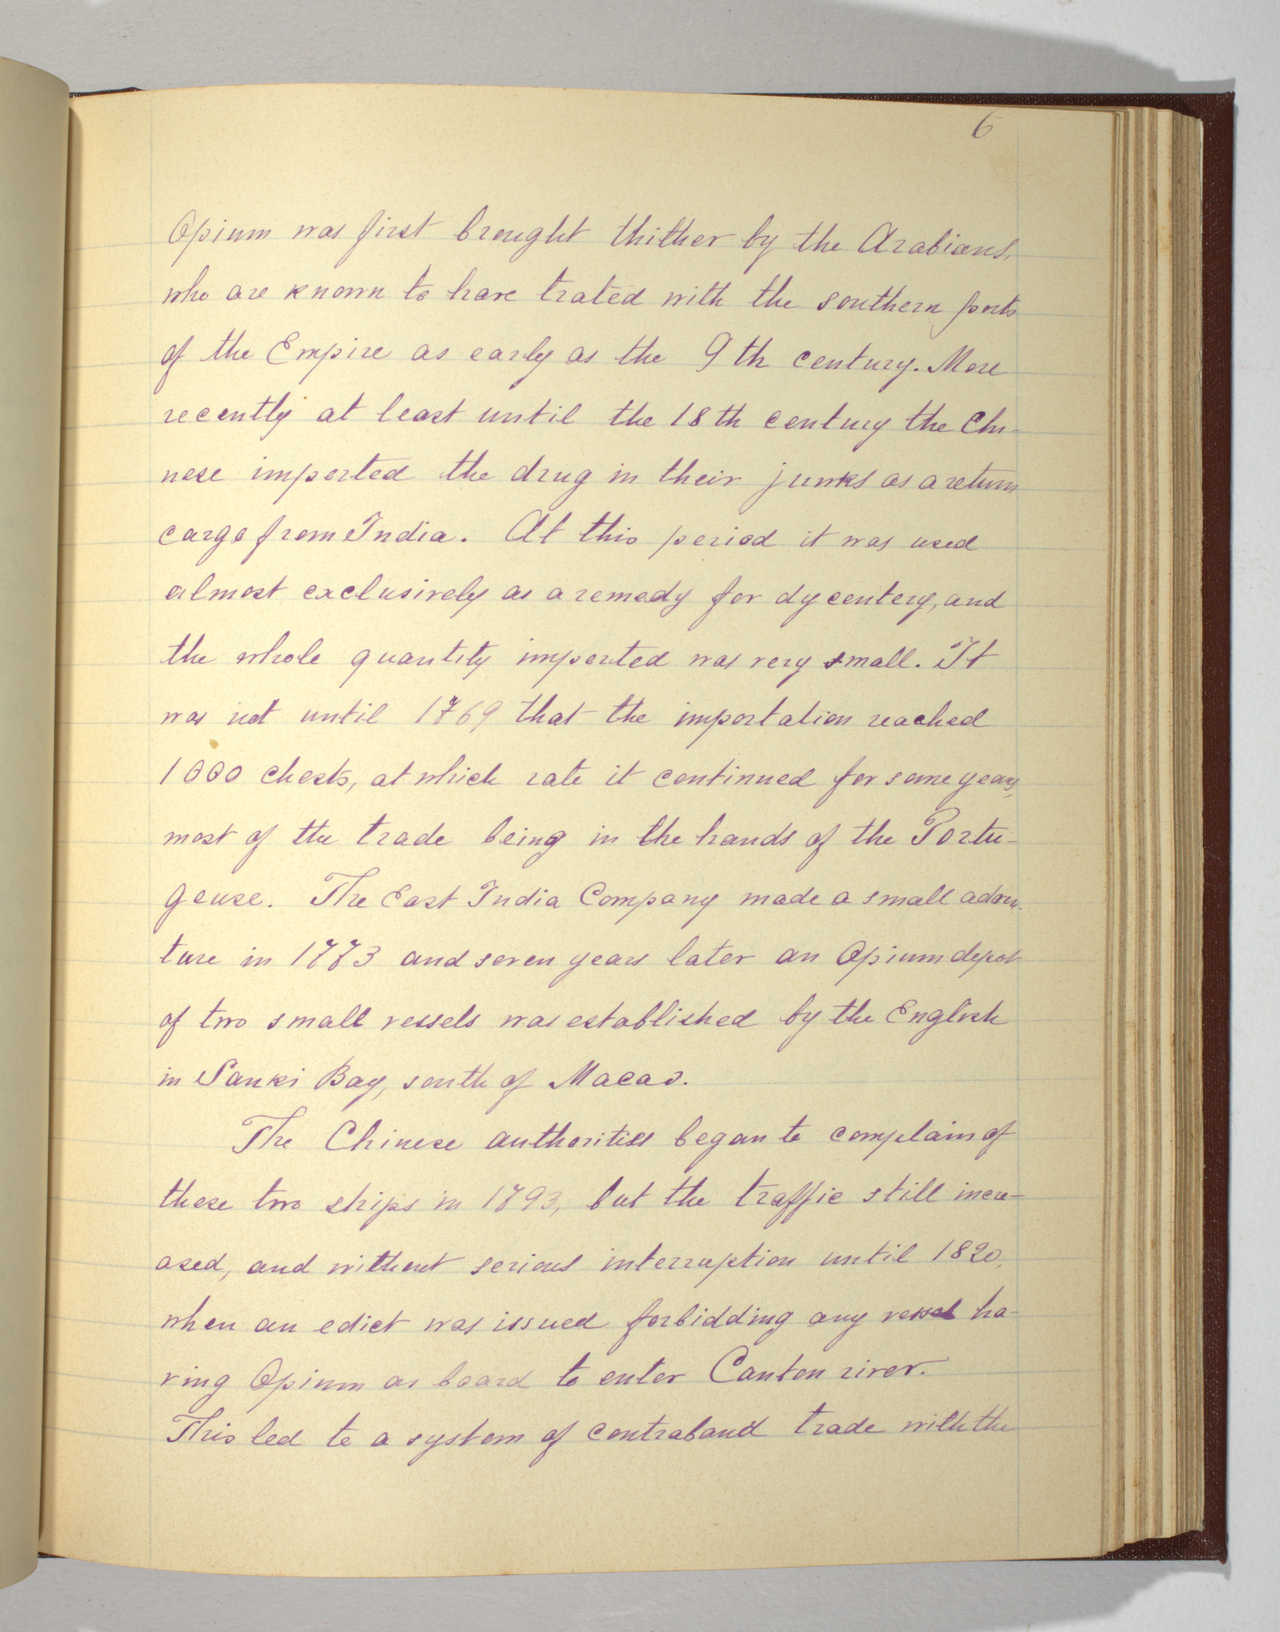 6
Opium was first brought thither by the Arabians,
who are known to have trated with the southern ports
of the Empire as early as the 9th century. More
recently at least until the 18th century the Chi-
nese imported the drug in their junks as a return
cargo from India. At this period it was used
almost exclusively as a remedy for dycentery, and
the whole quantity imported was very small. It
was not until 1769 that the importation reached
1000 chests, at which rate it continued for some years,
most of the trade being in the hands of the Portu-
geuse. The East India Company made a small adven-
ture in 1773 and seven years later an Opium depot
of two small vessels was established by the English
in Sanki Bay, south of Macao.
The Chinese authorities began to complain of
these two ships in 1793, but the traffic still incre-
ased, and without serious interruption until 1820,
when an edict was issued forbidding any vessel ha-
ving Opium as board to enter Canton river.
This led to a system of contraband trade with the